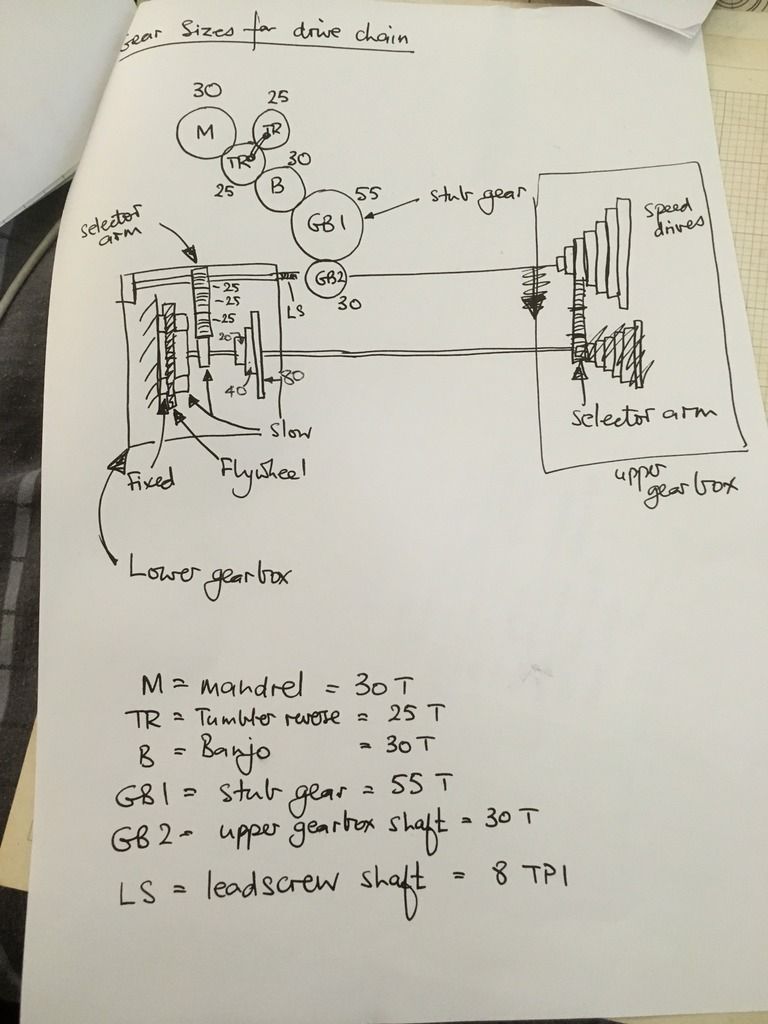 Gear Sizes for drive chain
30
25
M
TR
TR
30
25
B
55
GB1
stub gear
selector
arm
speed
drives
GB2
-25
-25
-25
LS
30
20
40
80
selector arm
slow
Fixed
Flywheel
upper
gearbox
Lower gearbox
M = mandrel = 30 T
TR = Tumbler reverse = 25 T
B = Banjo = 30T
GB1 = stub gear = 55 T
GB2 = upper gearbox shaft = 30 T
LS = leadscrew shaft = 8 TPI